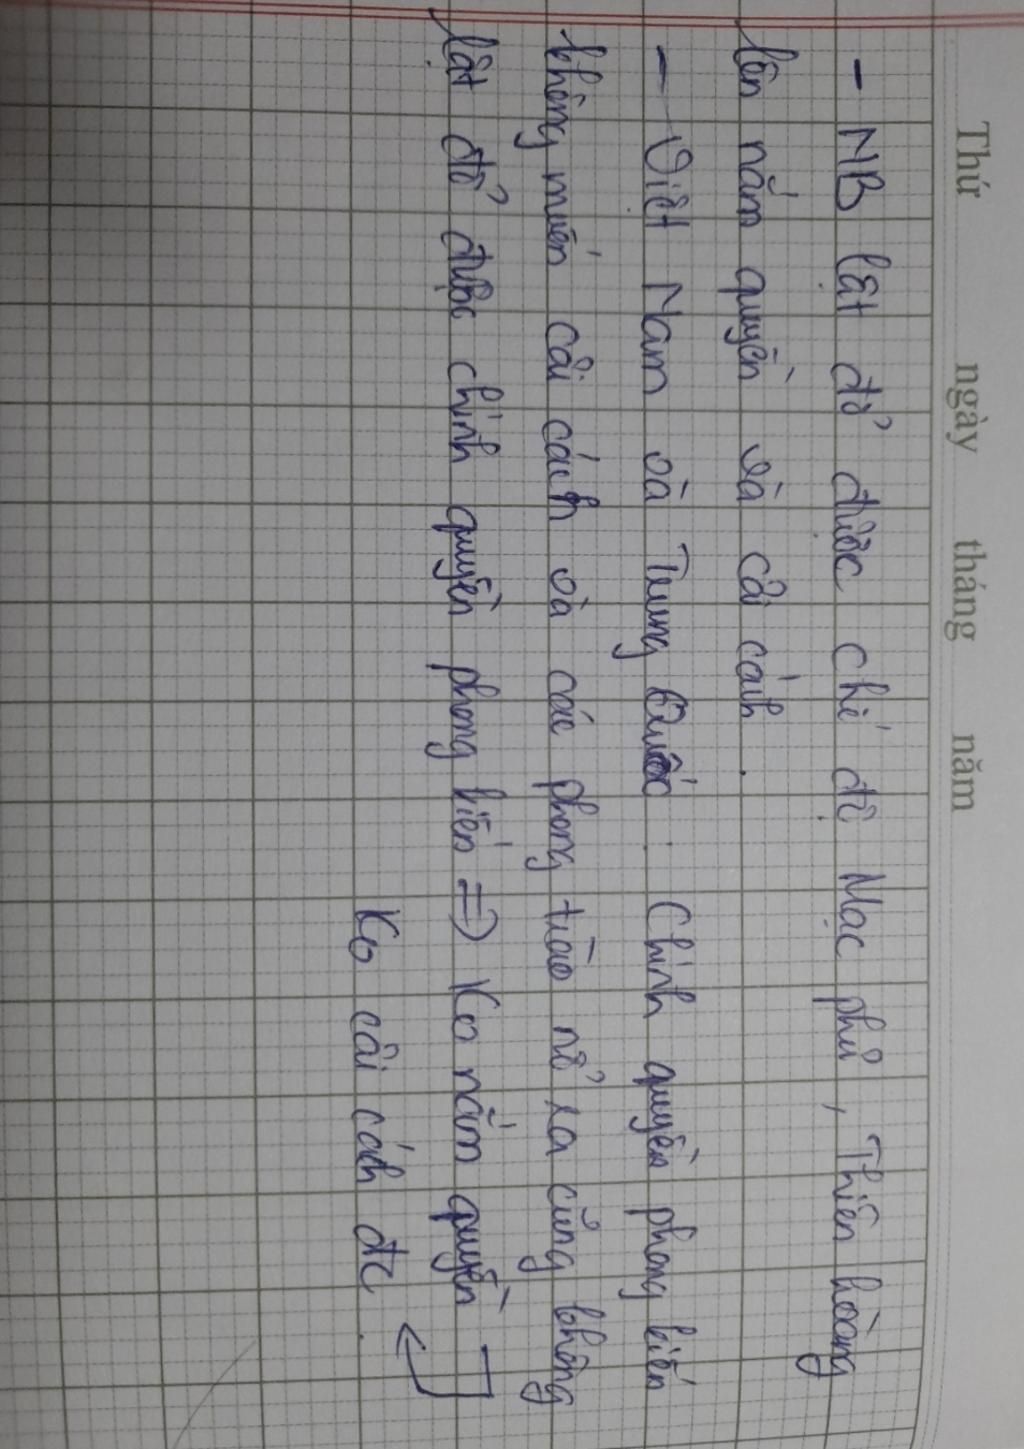 Thứ ngày tháng năm
- NB lật đổ được chế độ Mạc phủ, Thiên hoàng
lên nắm quyền và cải cách.
- Việt Nam và Trung Quốc: Chính quyền phong kiến
không muốn cải cách và các phong trào nổ ra cũng không
lật đổ được chính quyền phong kiến => Ko nắm quyền
Ko cải cách đc.